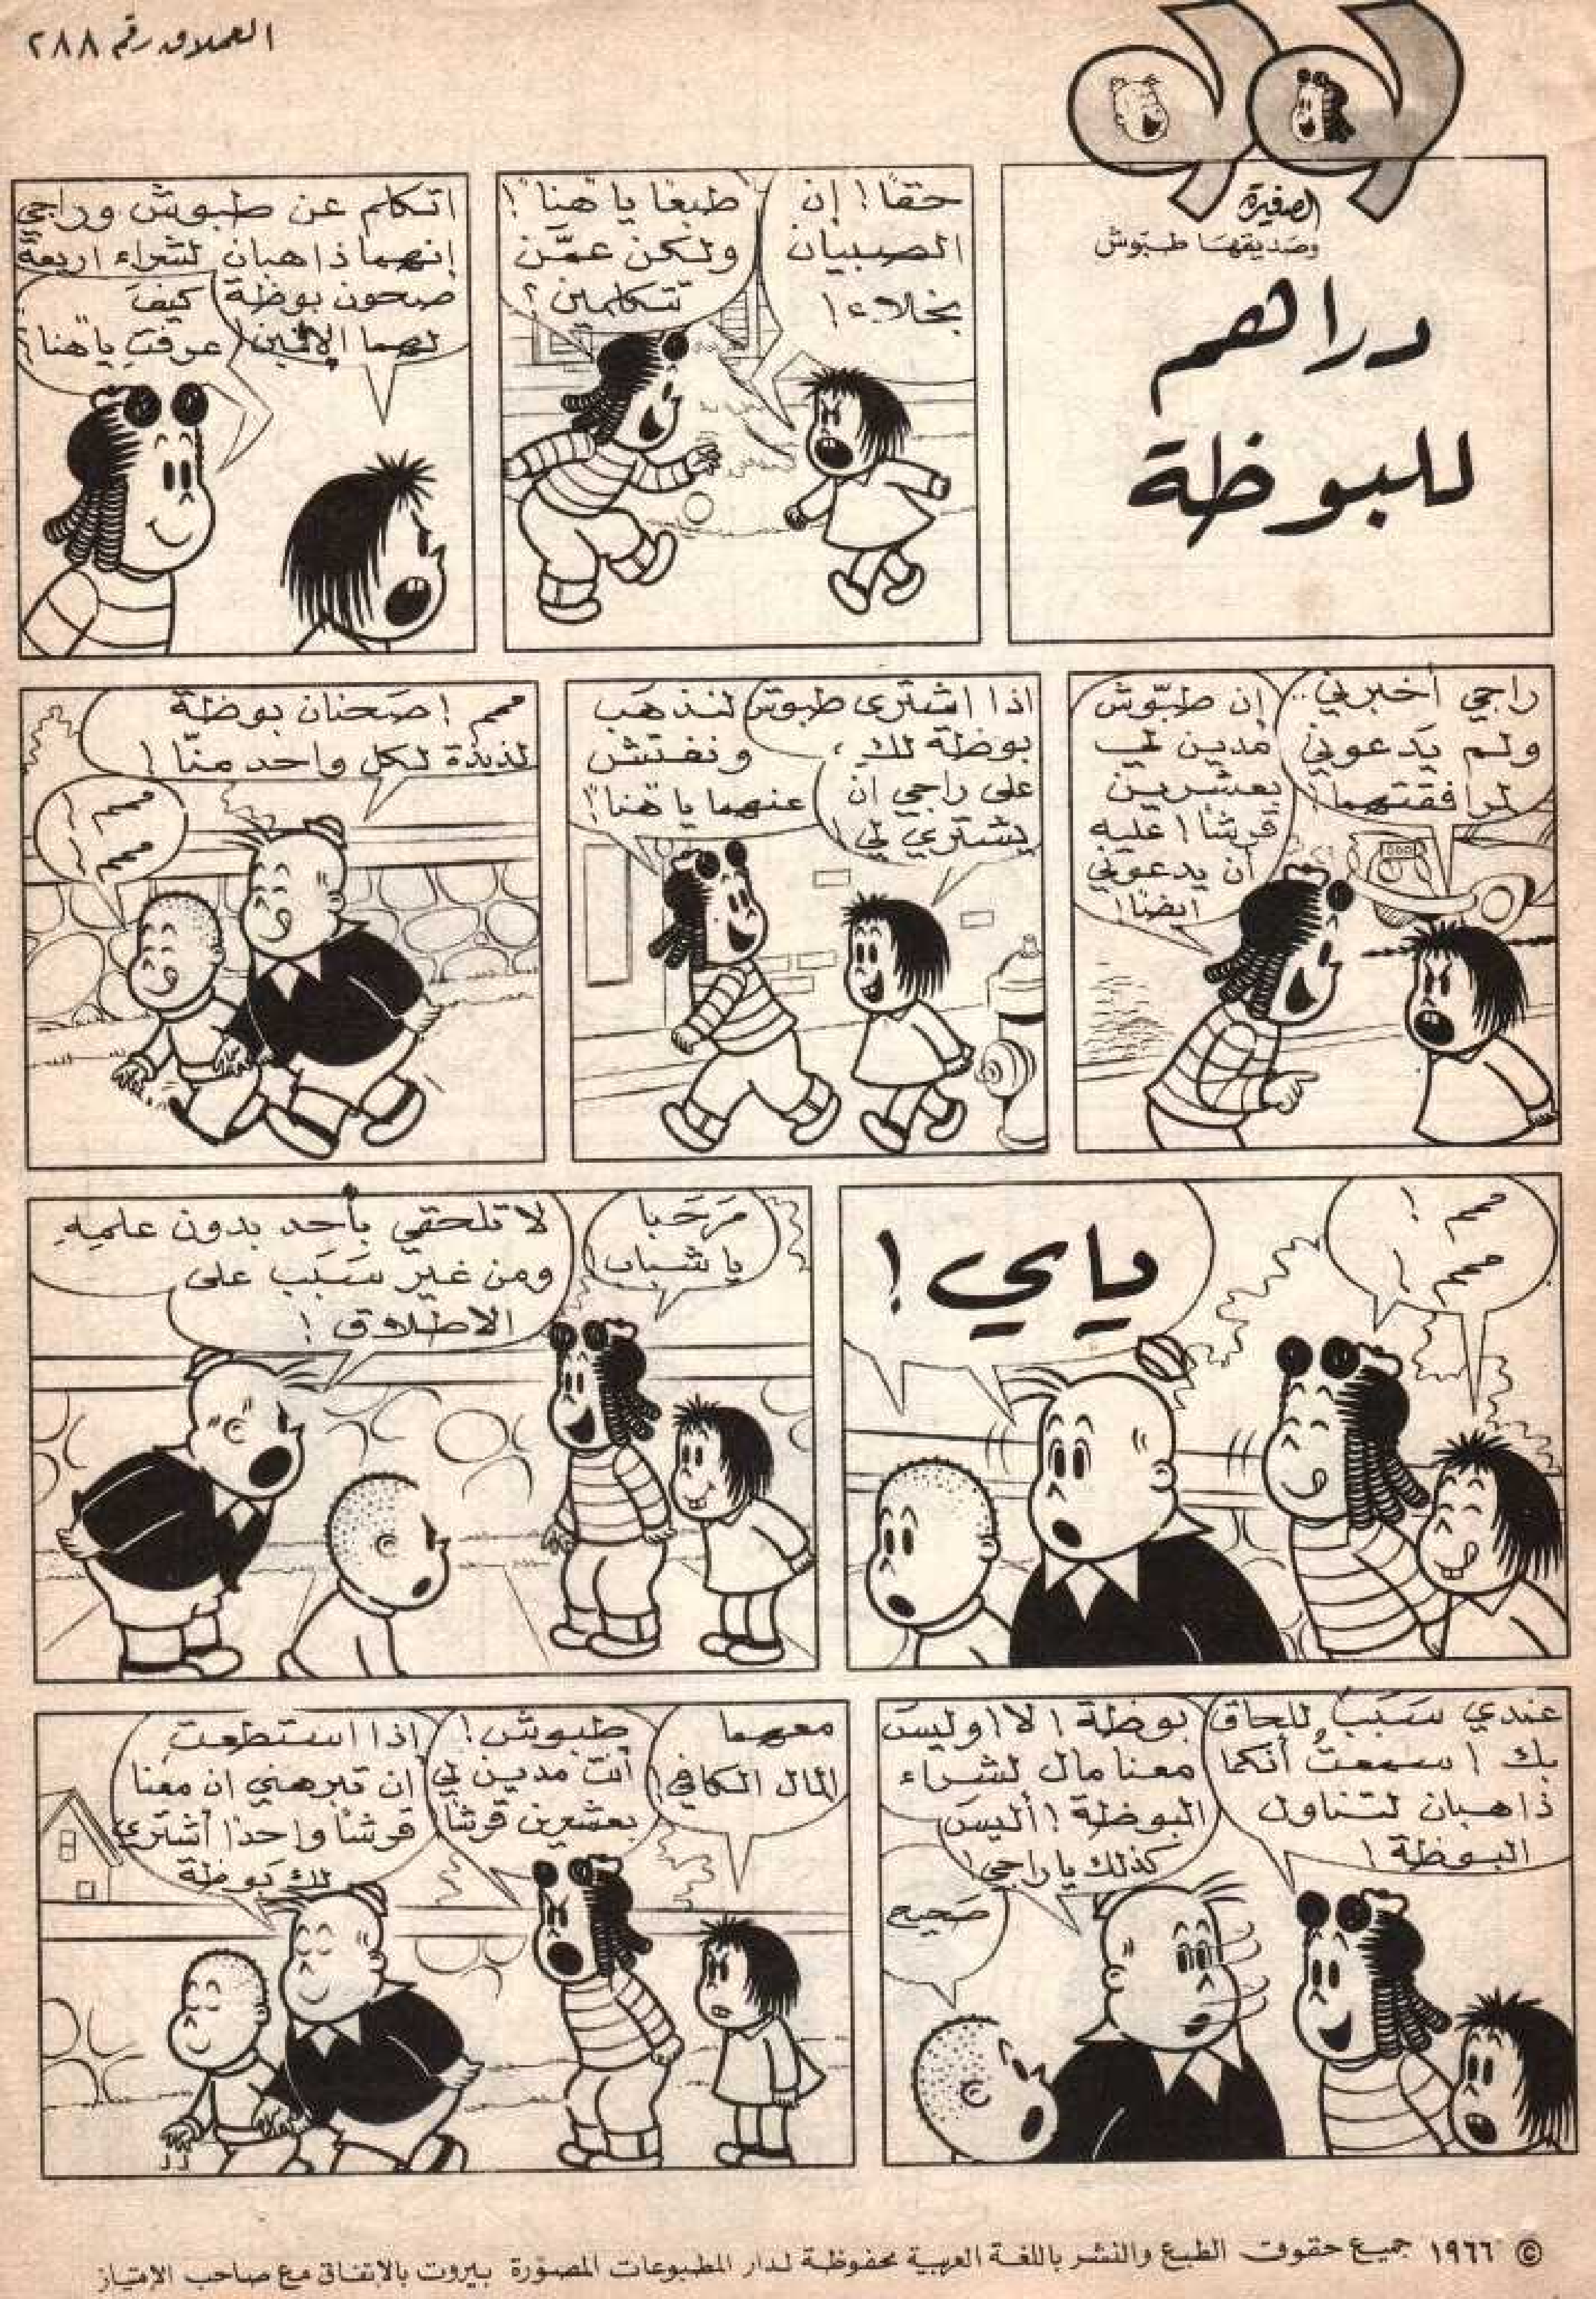 العملاق رقم ٢٨٨
لولو
الصغيرة
وصديقها طبّوش
دراهم
للبوظة
حقًا! إن
الصبيان
بخلاء!
طبعًا يا هنا!
ولكن عمّن
تتكلمين؟
اتكلم عن طبوش وراجي
إنهما ذاهبان لشراء اربعة
صحون بوظة
لهما الإثنين!
كيف
عرفتِ يا هنا؟
راجي أخبرني..
ولم يدعوني
لمرافقتهما!
إن طبّوش
مدين لي
بعشرين
قرشًا! عليه
أن يدعوني
ايضًا!
اذا اشترى طبوش
بوظة لك،
على راجي ان
يشتري لي!
لنذهب
ونفتش
عنهما يا هنا!
ممم! صحنان بوظة
لذيذة لكل واحد منّا!
ممم!
ممم!
ممم!
ممم!
ياي!
مَرحَبا
يا شباب!
لا تلحقي بأحد بدون علمِهِ
ومن غير سَبَب على
الاطلاق!
عندي سَبَبٌ للحاق
بك! سمعتُ أنكما
ذاهبان لتناول
البوظة!
بوظة! لا! وليسَ
معنا مال لشراء
البوظة! أليسَ
كذلك يا راجي!
صَحيح
معهما
المال الكافي!
طبوش!
أنت مدين لي
بعشرين قرشًا!
إذا استطعتِ
ان تبرهني ان معنا
قرشًا واحدًا أشتري
لكِ بوظة
© ١٩٦٦ جميع حقوق الطبع والنشر باللغة العربية محفوظة لدار المطبوعات المصورة بيروت بالاتفاق مع صاحب الإمتياز